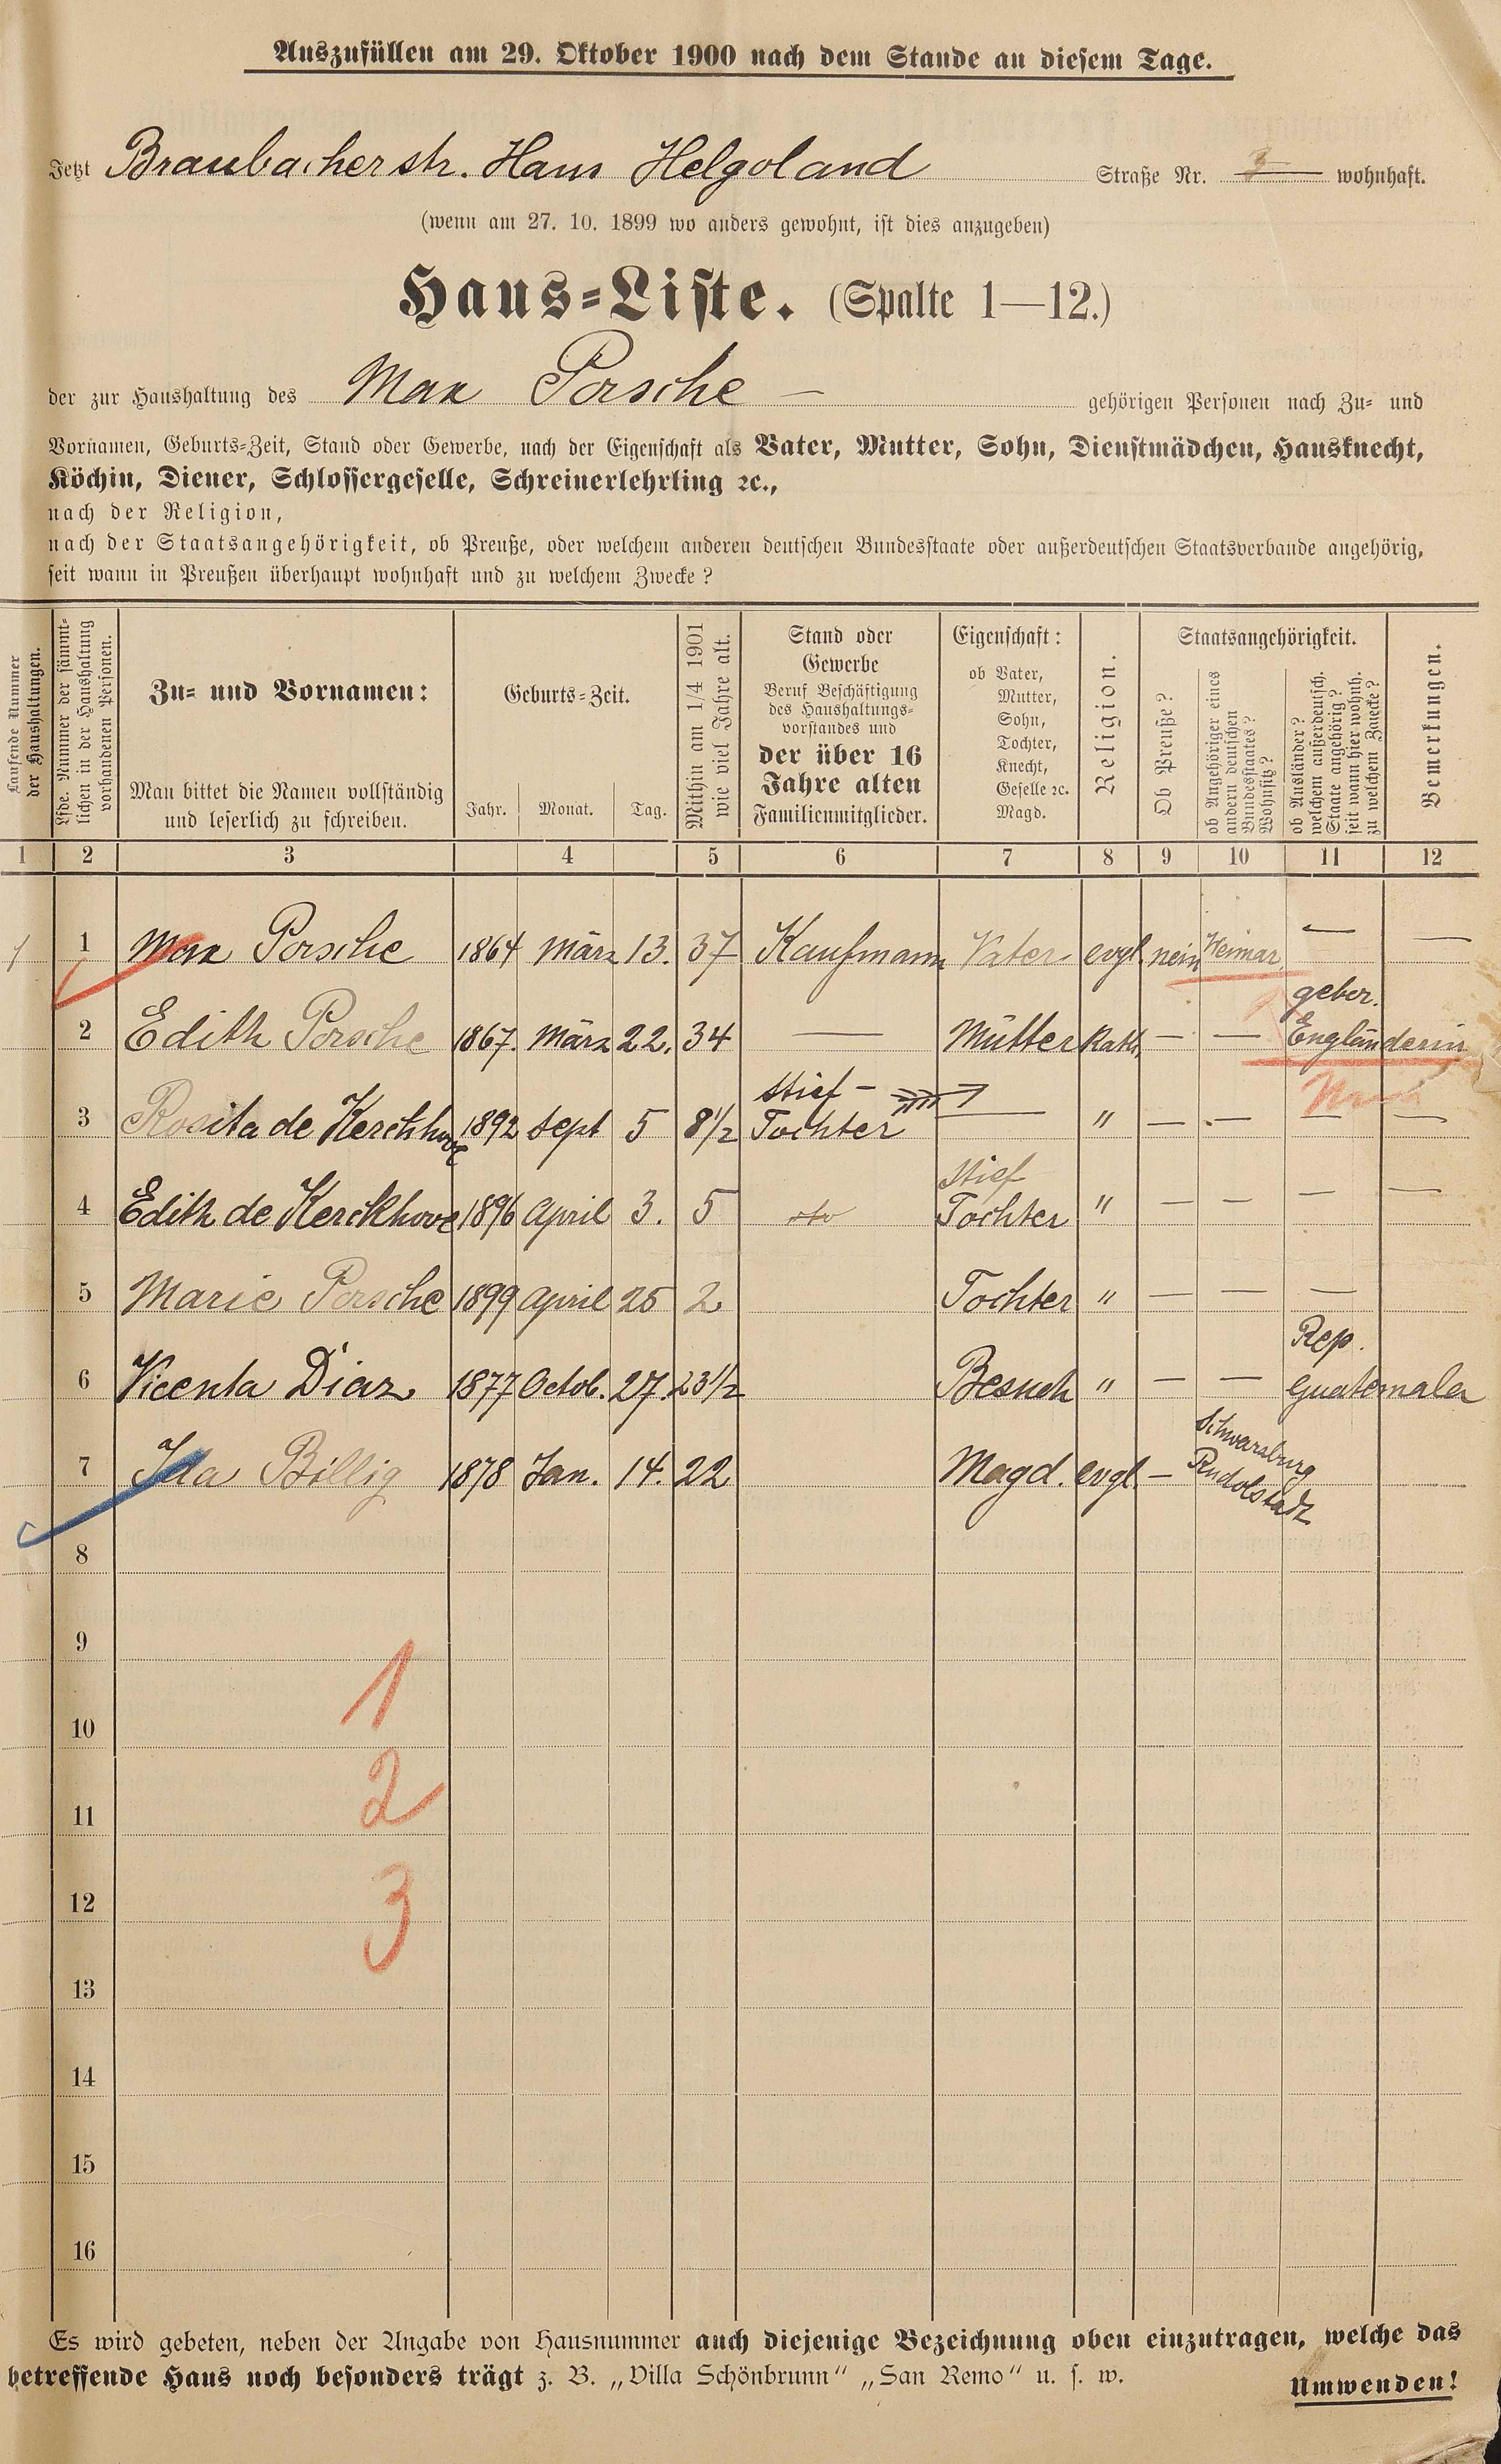 Auszufüllen am 29. Oktober 1900 nach dem Stande an diesem Tage.
Jetzt Braubacherstr. Haus Helgoland Straße Nr. 3 wohnhaft.
(wenn am 27. 10. 1899 wo anders gewohnt, ist dies anzugeben)
Haus=Liste. (Spalte 1—12.)
der zur Haushaltung des Max Porsche — gehörigen Personen nach Zu= und
Vornamen, Geburts=Zeit, Stand oder Gewerbe, nach der Eigenschaft als Vater, Mutter, Sohn, Dienstmädchen, Hausknecht,
Köchin, Diener, Schlossergeselle, Schreinerlehrling ꝛc.,
nach der Religion,
nach der Staatsangehörigkeit, ob Preuße, oder welchem anderen deutschen Bundesstaate oder außerdeutschen Staatsverbande angehörig,
seit wann in Preußen überhaupt wohnhaft und zu welchem Zwecke?
Laufende Nummer
der Haushaltungen.
Lfde. Nummer der sämmt=
lichen in der Haushaltung
vorhandenen Personen.
Zu= und Vornamen:
Man bittet die Namen vollständig
und leserlich zu schreiben.
Geburts=Zeit.
Jahr. Monat. Tag.
Mithin am 1/4 1901
wie viel Jahre alt.
Stand oder
Gewerbe
Beruf Beschäftigung
des Haushaltungs=
vorstandes und
der über 16
Jahre alten
Familienmitglieder.
Eigenschaft:
ob Vater,
Mutter,
Sohn,
Tochter,
Knecht,
Geselle ꝛc.
Magd.
Religion.
Staatsangehörigkeit.
Ob Preuße?
ob Angehöriger eines
andern deutschen
Bundesstaates?
Wohnsitz?
ob Ausländer?
welchem außerdeutsch.
Staate angehörig?
seit wann hier wohnh.
zu welchem Zwecke?
Bemerkungen.
1 2 3 4 5 6 7 8 9 10 11 12
1 1 Max Porsche 1864 März 13. 37 Kaufmann Vater evgl. nein Weimar. — —
geber.
2 Edith Porsche 1867. März 22. 34 — Mutter Kath. — — Engländerin
Stief —
3 Rosita de Kerckhove 1892 Sept 5 8 1/2 Tochter — " — — — —
Stief
4 Edith de Kerckhove 1896 April 3. 5 dto Tochter " — — — —
5 Marie Porsche 1899 April 25 2 Tochter " — — —
Rep.
6 Vicenta Diaz 1877 Octob. 27. 23 1/2 Besuch " — — Guatemala
Schwarzburg
7 Ida Billig 1878 Jan. 14. 22 Magd. evgl. — Rudolstadt
8
9
1
10
2
11
12
3
13
14
15
16
Es wird gebeten, neben der Angabe von Hausnummer auch diejenige Bezeichnung oben einzutragen, welche das
betreffende Haus noch besonders trägt z. B. „Villa Schönbrunn" „San Remo" u. s. w.
Umwenden!